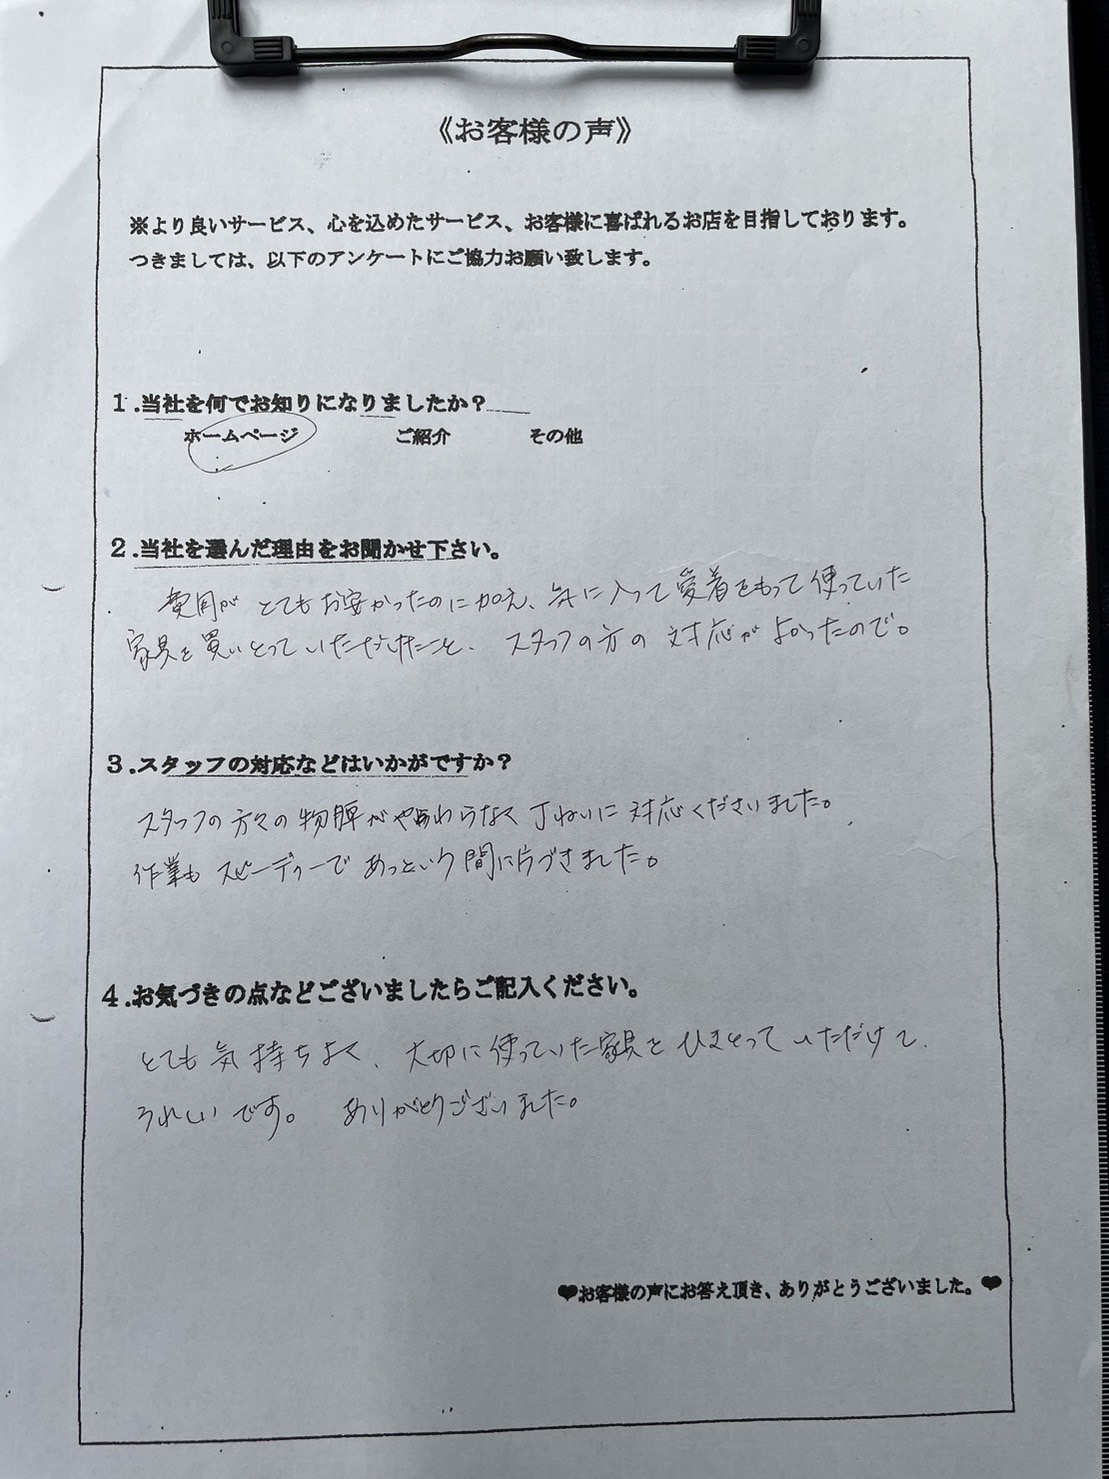 《お客様の声》
※より良いサービス、心を込めたサービス、お客様に喜ばれるお店を目指しております。
つきましては、以下のアンケートにご協力お願い致します。
1.当社を何でお知りになりましたか?
ホームページ ご紹介 その他
2.当社を選んだ理由をお聞かせ下さい。
費用が とてもお安かったのに加え、気に入って愛着をもって使っていた
家具を買いとっていただけたこと、スタッフの方の対応がよかったので。
3.スタッフの対応などはいかがですか?
スタッフの方々の物腰がやわらなく丁ねいに対応くださいました。
作業もスピーディーであっという間に片づきました。
4.お気づきの点などございましたらご記入ください。
とても気持ちよく、大切に使っていた家具をひきとっていただけて、
うれしいです。 ありがとうございました。
♥お客様の声にお答え頂き、ありがとうございました。♥